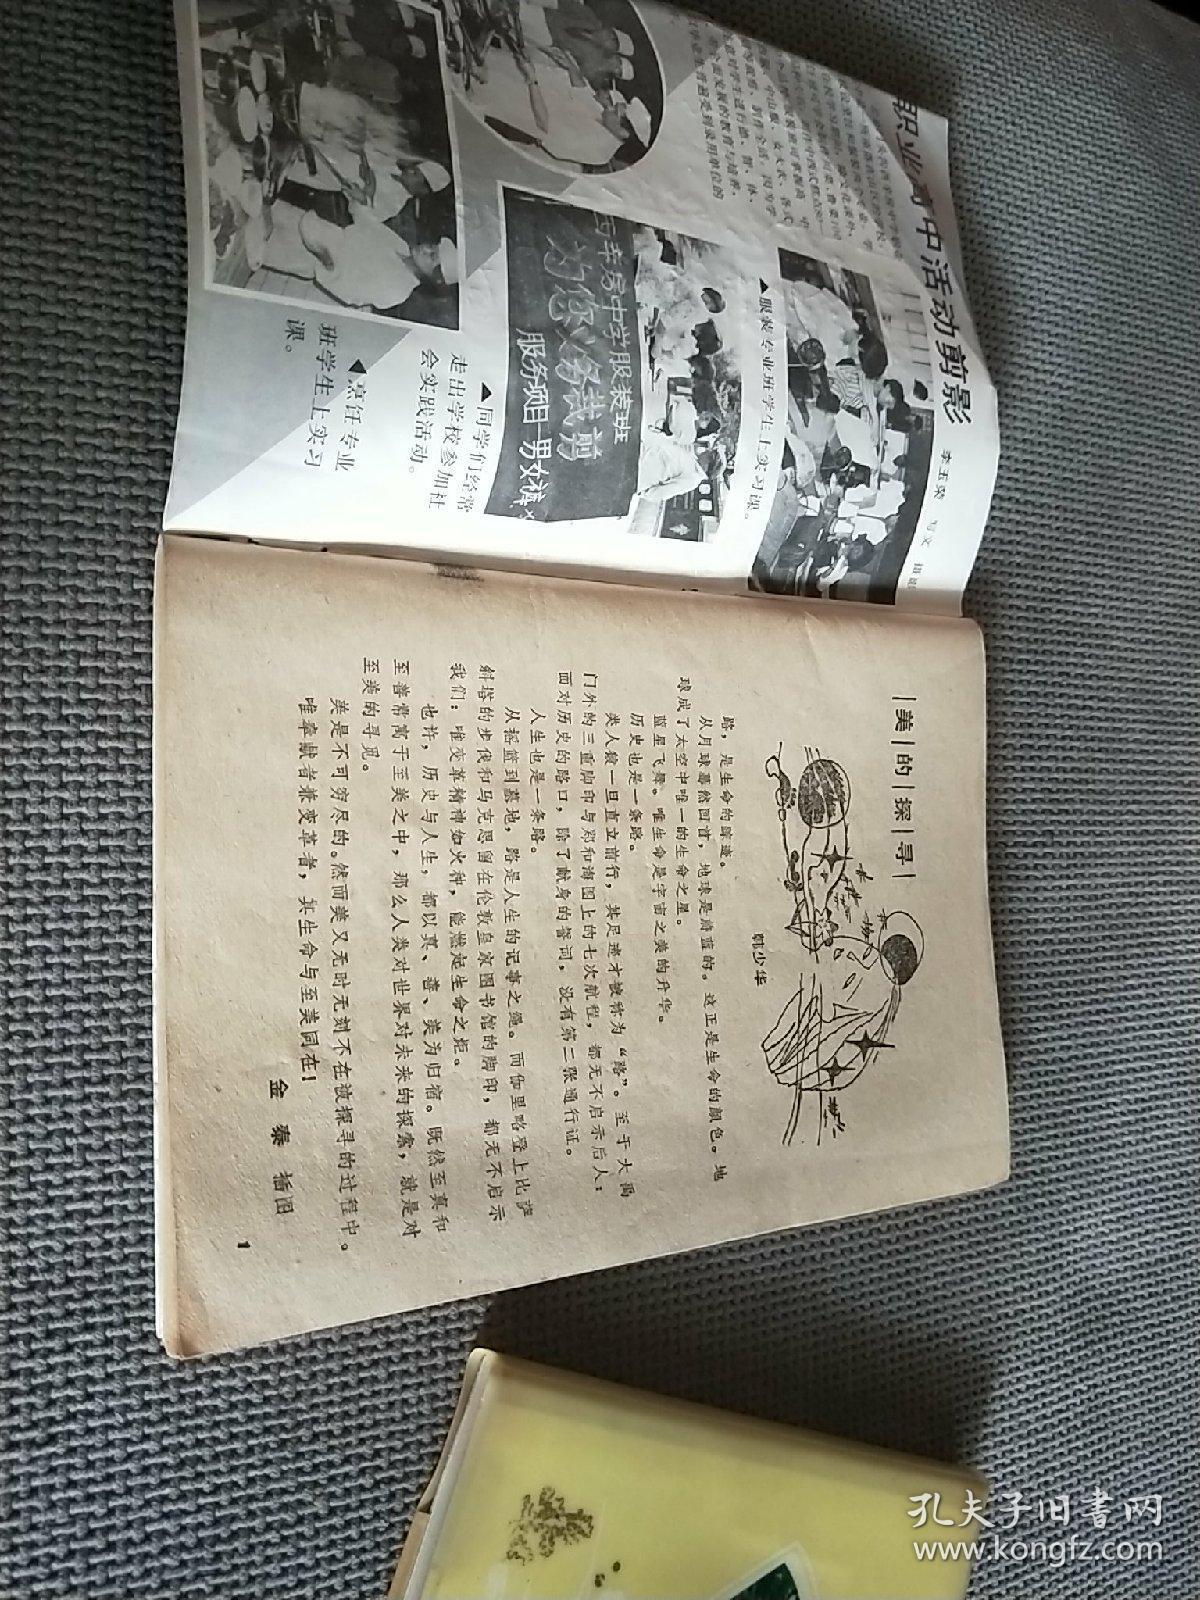 职业高中活动剪影
李玉荣 写文 摄影
▲服装专业班学生上实习课。
西辛房中学服装班
为您义务裁剪
服务项目 男女裤
▲同学们经常
走出学校参加社
会实践活动。
▼烹饪专业
班学生上实习
课。
美的探寻
韩少华
路，是生命的踪迹。
从月球蓦然回首，地球是蔚蓝的。这正是生命的颜色。地
球成了太空中唯一的生命之星。
蓝星飞舞。唯生命是宇宙之美的升华。
历史也是一条路。
类人猿一旦直立前行，其足迹才被称为“路”。至于大禹
门外的三重脚印与郑和海图上的七次航程，都无不启示后人：
面对历史的路口，除了献身的誓词，没有第二张通行证。
人生也是一条路。
从摇篮到墓地，路是人生的记事之绳。而伽里略登上比萨
斜塔的步伐和马克思留在伦敦皇家图书馆的脚印，都无不启示
我们：唯变革精神如火种，能燃起生命之炬。
也许，历史与人生，都以真、善、美为归宿。既然至真和
至善常寓于至美之中，那么人类对世界对未来的探索，就是对
至美的寻觅。
美是不可穷尽的。然而美又无时无刻不在被探寻的过程中。
唯奉献者兼变革者，其生命与至美同在！
金 泰 插图
1
孔夫子旧書网
www.kongfz.com